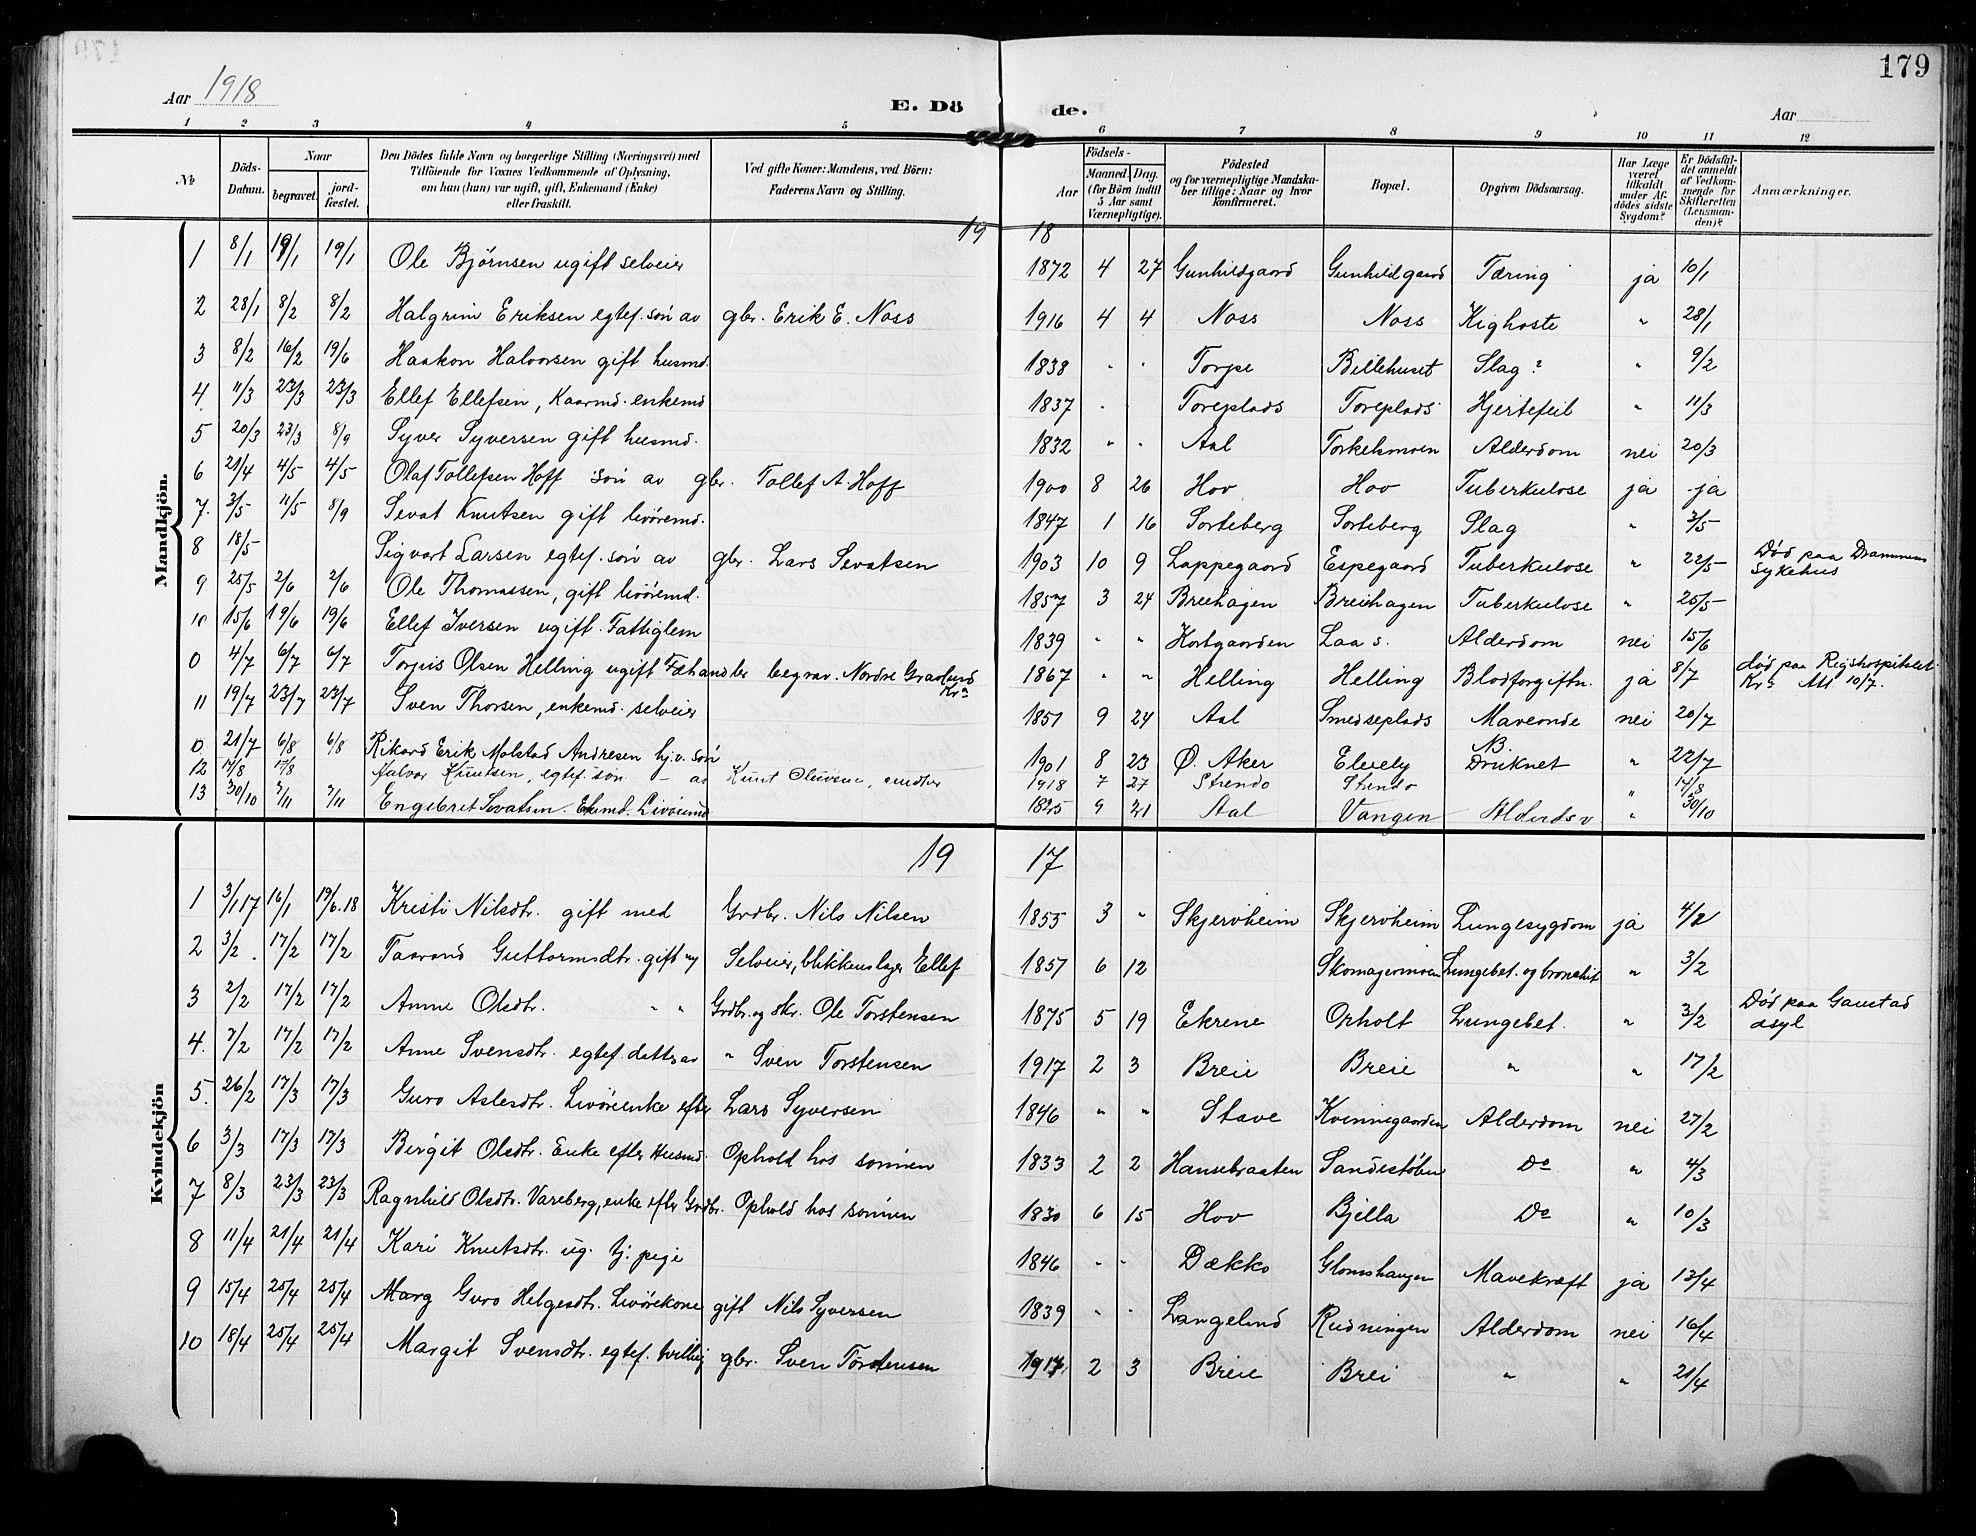 179
Aar 1918 E. Dö de. Aar
1 2 3 4 5 6 7 8 9 10 11 12
№ Döds-Datum. Naar begravet. jord-fæstet. Den Dödes fulde Navn og borgerlige Stilling (Næringsvei) med Tilföiende for Voxnes Vedkommende af Oplysning, om han (hun) var ugift, gift, Enkemand (Enke) eller fraskilt. Ved gifte Koner: Mandens, ved Börn: Faderens Navn og Stilling. Födsels- Aar Maaned. Dag. (for Börn indtil 5 Aar samt Værnepligtige). Födested og for værnepligtige Mandska-ber tillige: Naar og hvor konfirmeret. Bopæl. Opgiven Dödsaarsag. Har Læge været tilkaldt under Af-dödes sidste Sygdom? Er Dödsfal-det anmeldt af Vedkom-mende for Skifteretten (Lensman-den)? Anmærkninger.
Mandkjön.
19 18
1 8/1 19/1 19/1 Ole Bjørnsen ugift selveier 1872 4 27 Gunhildgaard Gunhildgaard Tæring ja 10/1
2 28/1 8/2 8/2 Halgrim Eriksen egtef. søn av gbr. Erik E. Noss 1916 4 4 Noss Noss Kighoste " 28/1
3 8/2 16/2 19/6 Haakon Halvorsen gift husmd. 1838 " " Torpe Billehuset Slag? " 9/2
4 11/3 23/3 23/3 Ellef Ellefsen, Kaarmd. enkemd 1837 " " Toreplads Toreplads Hjertefeil " 11/3
5 20/3 23/3 8/9 Syver Syversen gift husmd. 1832 " " Aal Torkelsmoen Alderdom nei 20/3
6 21/4 4/5 4/5 Olaf Tollefsen Hoff søn av gbr. Tollef A. Hoff 1900 8 26 Hov Hov Tuberkulose ja ja
7. 3/5 11/5 8/9 Sevat Knutsen gift livøremd. 1847 1 16 Sorteberg Sorteberg Slag " 3/5
8 18/5 Sigvart Larsen egtef. søn av gbr. Lars Sevatsen 1903 10 9 Lappegaard Espegaard Tuberkulose " 22/5 Død paa Drammens Sykehus
9 25/5 2/6 2/6 Ole Thomassen, gift livøremd. 1857 3 24 Breihagen Breihagen Tuberkulose " 25/5
10 15/6 19/6 19/6 Ellef Iversen ugift. Fattiglem 1839 " " Kortgaarden Laa s. Alderdom nei 15/6
0 4/7 6/7 6/7 Torjus Olsen Helling ugift Fæhandler begrav. Nordre Gravlund Kra 1867 " " Helling Helling Blodforgiftn. ja 8/7 død paa Rigshospitalet Kra Att. 10/7.
11 19/7 23/7 23/7 Sven Thorsen, enkemd. selveier 1851 9 24 Aal Smedseplads Mavevonde nei 20/7
0 21/7 6/8 6/8 Rikard Erik Molstad Andresen hj.v. søn 1901 8 23 Ø. Aker Elvely NB. Druknet " 22/7
12 14/8 17/8 Halvor Knutsen, egtef. søn – av Knut 1918 7 27 Strendo Strendo " 14/8
13 30/10 7/11 7/11 Engebret Sevatsen. Ekmd. Livøremd 1825 9 21 Aal Vangen Alderdv " 30/10
Kvindekjön
19 17
1 3/1 17 16/1 19/6.18 Kristi Nilsdtr. gift med Grdbr. Nils Nilsen 1855 3 " Skjervheim Skjervheim Lungesygdom ja 4/2
2 3/2. 17/2 17/2 Taarand Guttormsdtr. gift m Selveier, blikkenslager Ellef 1857 6 12 Skomagermoen Lungebet. og bronchit " 3/2
3 2/2 17/2 17/2 Anne Olsdtr. " " Grdbr. og skr. Ole Torstensen 1875 5 19 Ekrene Opholt Lungebet. " 3/2 Død paa Gaustad asyl
4. 7/2 17/2 17/2 Anne Svensdtr. egtef. datter av " Sven Torstensen 1917 2 3 Breie Breie " " 17/2
5. 26/2 17/3 17/3 Guro Aslesdtr. Livøreenke efter Lars Syversen 1846 " " Stave Kvinnegaarden Alderdom nei 27/2
6 3/3 17/3 17/3 Birgit Olsdtr. Enke efter Husmd. Ophold hos sønnen 1833 2 2 Hansebraaten Sandestølen Do " 4/3
7 8/3 23/3 23/3 Ragnhild Olsdtr. Vareberg, enke efter Grdbr. Ophold hos sønnen 1830 6 15 Hov Bjella Do " 10/3
8 11/4 21/4 21/4 Kari Knutsdtr. ug. tj. peje 1846 " " Dække Glomshaugen Mavekræft ja 13/4
9 15/4 25/4 25/4 Marg Guro Helgesdtr. Livørekone gift Nils Syversen 1839 " " Langelind Rudningen Alderdom nei 16/4
10 18/4 25/4 25/4 Margit Svensdtr. egtef. tvilling gbr. Sven Torstensen 1917 2 3 Breie Brei " " 21/4